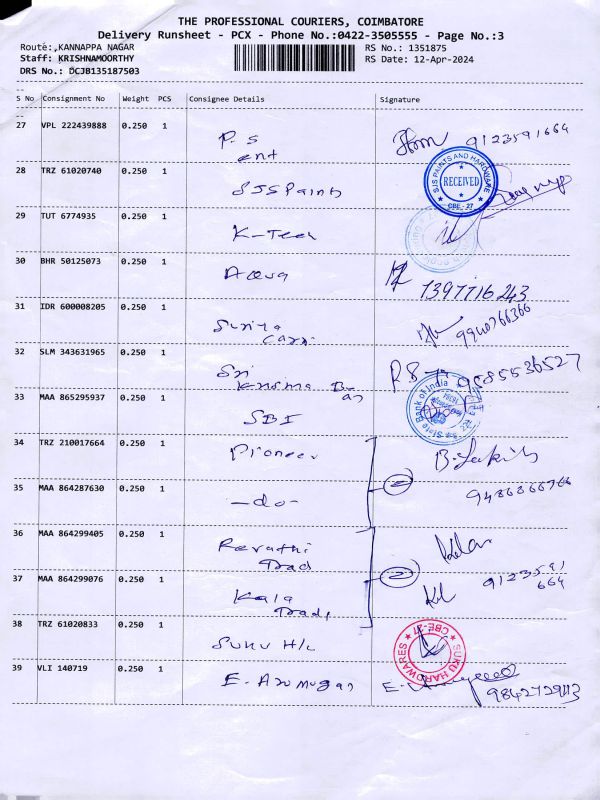 THE PROFESSIONAL COURIERS, COIMBATORE
Delivery Runsheet - PCX - Phone No.:0422-3505555 - Page No.:3
Route:,KANNAPPA NAGAR
RS No.: 1351875
Staff: KRISHNAMOORTHY
RS Date: 12-Apr-2024
DRS No.: DCJB135187503
S No Consignment No Weight PCS Consignee Details Signature
27 VPL 222439888 0.250 1 P.S 9123591664
ent
28 TRZ 61020740 0.250 1 SJS Paints SJS PAINTS AND HARDWARE RECEIVED CBE.- 27
29 TUT 6774935 0.250 1 K-Tech
30 BHR 50125073 0.250 1 Aqua 7397716243
31 IDR 600008205 0.250 1 9940766366
32 SLM 343631965 0.250 1 Sri RS 9585536527
33 MAA 865295937 0.250 1 SBI State Bank of India
34 TRZ 210017664 0.250 1 Pioneer
35 MAA 864287630 0.250 1 -do- 2
36 MAA 864299405 0.250 1 Revathi
Trad
37 MAA 864299076 0.250 1 Kala 2 9123591
Trade 664
38 TRZ 61020833 0.250 1 SUKU H/C SUKU HARDWARES CBE-27
39 VLI 140719 0.250 1 E. Arumugam